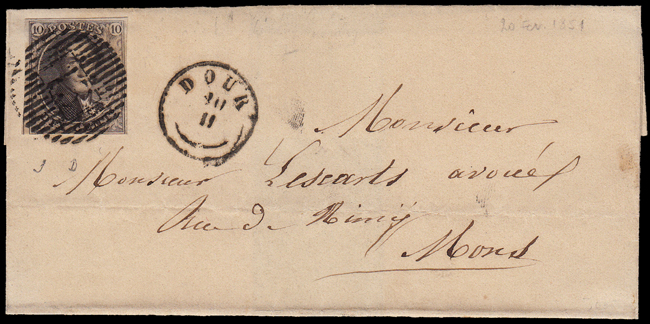 20 Fev. 1851
10 POSTES 10
DOUR
20
11
Monsieur
Monsieur Lescarts avoué
Rue de Nimy
Mons